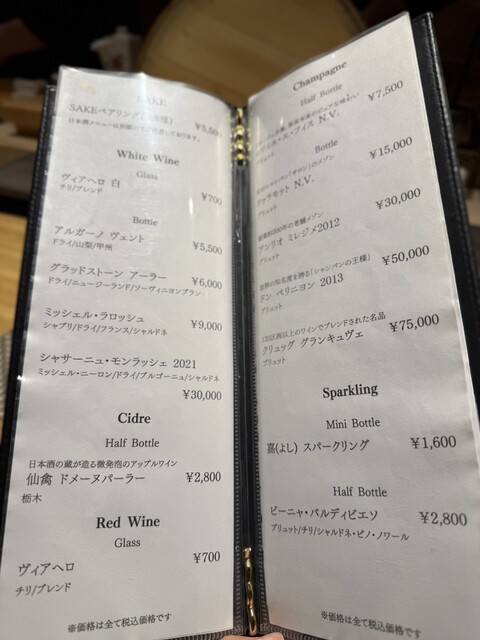 SAKE
SAKEペアリング
¥5,500
White Wine
Glass
ヴィアヘロ 白
¥700
チリ/ブレンド
Bottle
アルガーノ ヴェント
¥5,500
ドライ/山梨/甲州
グラッドストーン アーラー
¥6,000
ドライ/ニュージーランド/ソーヴィニヨンブラン
ミッシェル・ラロッシュ
¥9,000
シャブリ/ドライ/フランス/シャルドネ
シャサーニュ・モンラッシェ 2021
ミッシェル・ニーロン/ドライ/ブルゴーニュ/シャルドネ
¥30,000
Cidre
Half Bottle
日本酒の蔵が造る微発泡のアップルワイン
仙禽 ドメーヌパーラー
¥2,800
栃木
Red Wine
Glass
ヴィアヘロ
¥700
チリ/ブレンド
※価格は全て税込価格です
Champagne
Half Bottle
¥7,500
N.V.
ブリュット
Bottle
¥15,000
ドゥラモット N.V.
ブリュット
¥30,000
アンリオ ミレジメ2012
ブリュット
¥50,000
ドン ペリニヨン 2013
ブリュット
¥75,000
クリュッグ グランキュヴェ
ブリュット
Sparkling
Mini Bottle
嘉(よし) スパークリング
¥1,600
Half Bottle
ビーニャ・バルディビエソ
¥2,800
ブリュット/チリ/シャルドネ・ピノ・ノワール
※価格は全て税込価格です